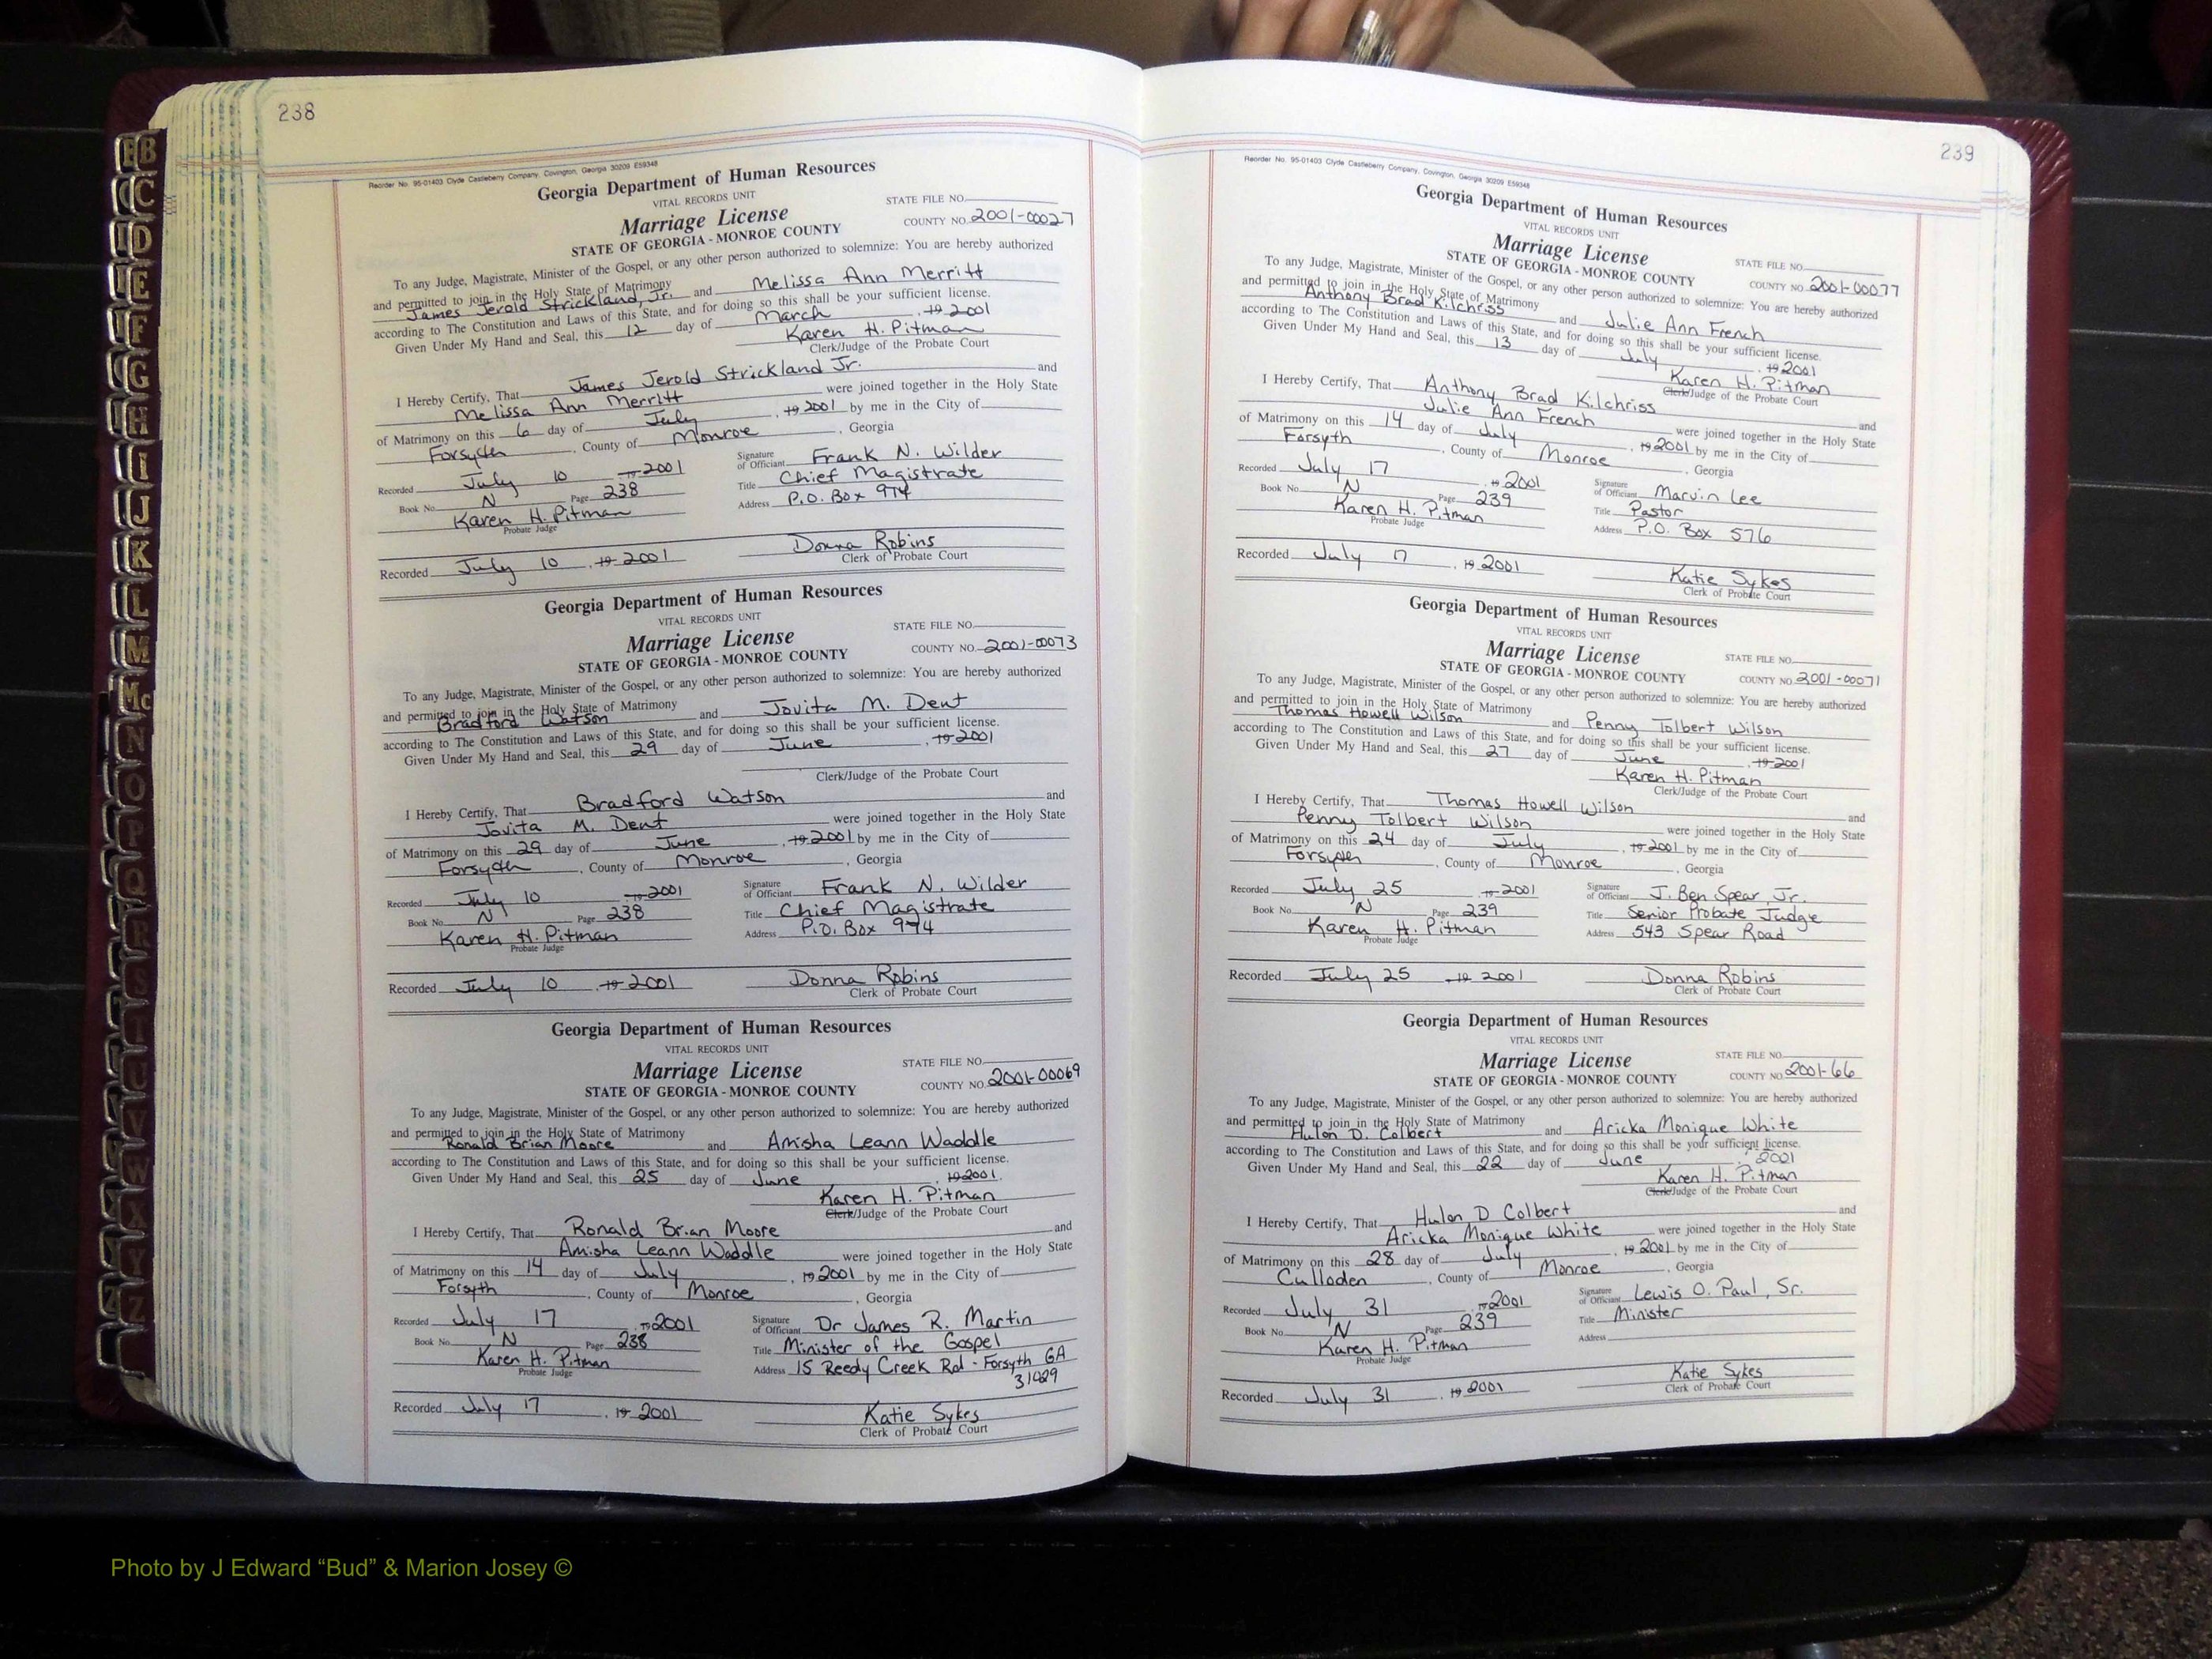 238
Reorder No. 95-01403 Clyde Castleberry Company, Covington, Georgia 30209 E59348
Georgia Department of Human Resources
VITAL RECORDS UNIT
STATE FILE NO.
Marriage License
COUNTY NO. 2001-00027
STATE OF GEORGIA - MONROE COUNTY
To any Judge, Magistrate, Minister of the Gospel, or any other person authorized to solemnize: You are hereby authorized
and permitted to join in the Holy State of Matrimony
James Jerold Strickland, Jr. and Melissa Ann Merritt
according to The Constitution and Laws of this State, and for doing so this shall be your sufficient license.
Given Under My Hand and Seal, this 12 day of March, 19 2001
Karen H. Pitman
Clerk/Judge of the Probate Court
I Hereby Certify, That James Jerold Strickland Jr. and
Melissa Ann Merritt were joined together in the Holy State
of Matrimony on this 6 day of July, 19 2001 by me in the City of
Forsyth, County of Monroe, Georgia
Recorded July 10 19 2001
Signature of Officiant Frank N. Wilder
Book No. N Page 238
Title Chief Magistrate
Karen H. Pitman
Address P.O. Box 974
Probate Judge
Recorded July 10, 19 2001
Donna Robins
Clerk of Probate Court
Georgia Department of Human Resources
VITAL RECORDS UNIT
STATE FILE NO.
Marriage License
COUNTY NO. 2001-00073
STATE OF GEORGIA - MONROE COUNTY
To any Judge, Magistrate, Minister of the Gospel, or any other person authorized to solemnize: You are hereby authorized
and permitted to join in the Holy State of Matrimony
Bradford Watson and Jovita M. Dent
according to The Constitution and Laws of this State, and for doing so this shall be your sufficient license.
Given Under My Hand and Seal, this 29 day of June, 19 2001
Clerk/Judge of the Probate Court
I Hereby Certify, That Bradford Watson and
Jovita M. Dent were joined together in the Holy State
of Matrimony on this 29 day of June, 19 2001 by me in the City of
Forsyth, County of Monroe, Georgia
Recorded July 10 19 2001
Signature of Officiant Frank N. Wilder
Book No. N Page 238
Title Chief Magistrate
Karen H. Pitman
Address P.O. Box 974
Probate Judge
Recorded July 10, 19 2001
Donna Robins
Clerk of Probate Court
Georgia Department of Human Resources
VITAL RECORDS UNIT
STATE FILE NO.
Marriage License
COUNTY NO. 2001-00069
STATE OF GEORGIA - MONROE COUNTY
To any Judge, Magistrate, Minister of the Gospel, or any other person authorized to solemnize: You are hereby authorized
and permitted to join in the Holy State of Matrimony
Ronald Brian Moore and Amisha Leann Waddle
according to The Constitution and Laws of this State, and for doing so this shall be your sufficient license.
Given Under My Hand and Seal, this 25 day of June, 19 2001.
Karen H. Pitman
Clerk/Judge of the Probate Court
I Hereby Certify, That Ronald Brian Moore and
Amisha Leann Waddle were joined together in the Holy State
of Matrimony on this 14 day of July, 19 2001 by me in the City of
Forsyth, County of Monroe, Georgia
Recorded July 17, 19 2001
Signature of Officiant Dr James R. Martin
Book No. N Page 238
Title Minister of the Gospel
Karen H. Pitman
Address 15 Reedy Creek Rd - Forsyth GA
31029
Probate Judge
Recorded July 17, 19 2001
Katie Sykes
Clerk of Probate Court
239
Reorder No. 95-01403 Clyde Castleberry Company, Covington, Georgia 30209 E59348
Georgia Department of Human Resources
VITAL RECORDS UNIT
Marriage License
STATE FILE NO.
STATE OF GEORGIA - MONROE COUNTY
COUNTY NO. 2001-00077
To any Judge, Magistrate, Minister of the Gospel, or any other person authorized to solemnize: You are hereby authorized
and permitted to join in the Holy State of Matrimony
Anthony Brad Kilchriss and Julie Ann French
according to The Constitution and Laws of this State, and for doing so this shall be your sufficient license.
Given Under My Hand and Seal, this 13 day of July, 19 2001
Karen H. Pitman
Clerk/Judge of the Probate Court
I Hereby Certify, That Anthony Brad Kilchriss and
Julie Ann French were joined together in the Holy State
of Matrimony on this 14 day of July, 19 2001 by me in the City of
Forsyth, County of Monroe, Georgia
Recorded July 17, 19 2001
Signature of Officiant Marvin Lee
Book No. N Page 239
Title Pastor
Karen H. Pitman
Address P.O. Box 576
Probate Judge
Recorded July 17, 19 2001
Katie Sykes
Clerk of Probate Court
Georgia Department of Human Resources
VITAL RECORDS UNIT
Marriage License
STATE FILE NO.
STATE OF GEORGIA - MONROE COUNTY
COUNTY NO. 2001-00071
To any Judge, Magistrate, Minister of the Gospel, or any other person authorized to solemnize: You are hereby authorized
and permitted to join in the Holy State of Matrimony
Thomas Howell Wilson and Penny Tolbert Wilson
according to The Constitution and Laws of this State, and for doing so this shall be your sufficient license.
Given Under My Hand and Seal, this 27 day of June, 19 2001
Karen H. Pitman
Clerk/Judge of the Probate Court
I Hereby Certify, That Thomas Howell Wilson and
Penny Tolbert Wilson were joined together in the Holy State
of Matrimony on this 24 day of July, 19 2001 by me in the City of
Forsyth, County of Monroe, Georgia
Recorded July 25, 19 2001
Signature of Officiant J. Ben Spear, Jr.
Book No. N Page 239
Title Senior Probate Judge
Karen H. Pitman
Address 543 Spear Road
Probate Judge
Recorded July 25, 19 2001
Donna Robins
Clerk of Probate Court
Georgia Department of Human Resources
VITAL RECORDS UNIT
STATE FILE NO.
Marriage License
COUNTY NO. 2001-66
STATE OF GEORGIA - MONROE COUNTY
To any Judge, Magistrate, Minister of the Gospel, or any other person authorized to solemnize: You are hereby authorized
and permitted to join in the Holy State of Matrimony
Hulon D. Colbert and Aricka Monique White
according to The Constitution and Laws of this State, and for doing so this shall be your sufficient license.
Given Under My Hand and Seal, this 22 day of June, 2001
Karen H. Pitman
Clerk/Judge of the Probate Court
I Hereby Certify, That Hulon D Colbert and
Aricka Monique White were joined together in the Holy State
of Matrimony on this 28 day of July, 19 2001 by me in the City of
Culloden, County of Monroe, Georgia
Recorded July 31, 19 2001
Signature of Officiant Lewis O. Paul, Sr.
Book No. N Page 239
Title Minister
Karen H. Pitman
Address
Probate Judge
Recorded July 31, 19 2001
Katie Sykes
Clerk of Probate Court
B
C
D
E
F
G
H
I
J
K
L
M
Mc
N
O
P
Q
R
S
T
U
V
W
X
Y
Z
Photo by J Edward “Bud” & Marion Josey ©